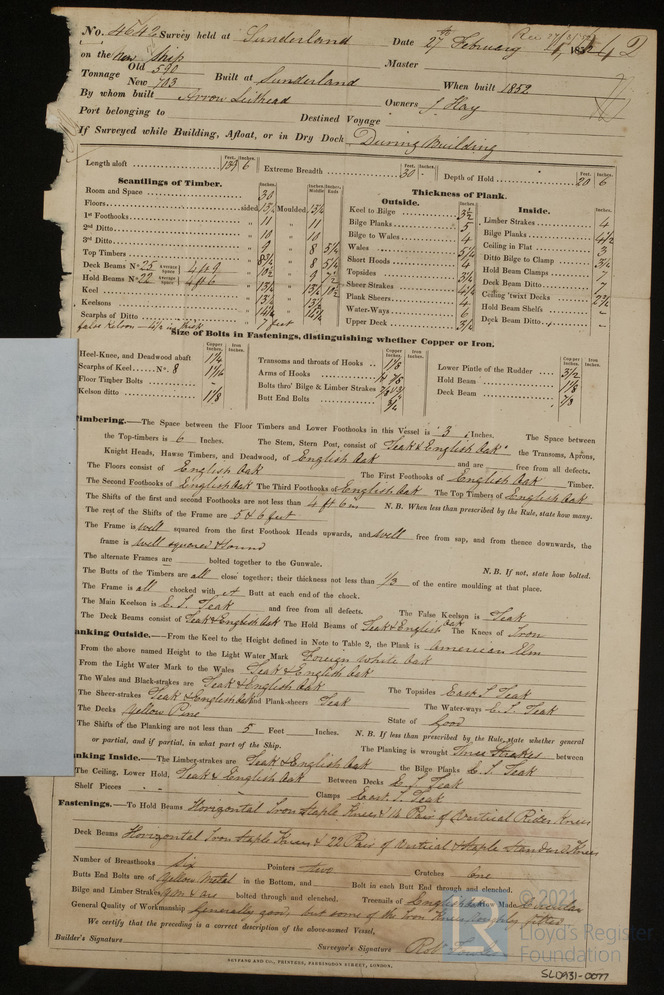 No. 4642 Survey held at Sunderland Date 27th February 1852
on the New Ship Master
Tonnage Old 590
New 703 Built at Sunderland When built 1852
By whom built Owners J Hay
Port belonging to Destined Voyage
If Surveyed while Building, Afloat, or in Dry Dock During Building
Length aloft 139 6 Extreme Breadth 30 Depth of Hold 20 6
Scantlings of Timber.
Room and Space 30
Floors sided 13½ Moulded 13½
1st Foothooks 11 11
2nd Ditto 10 10
3rd Ditto 9 8 5½
Top Timbers 8½ 8 5½
Deck Beams No. 25 Average Space 4 ft 9 10½ 9 7½
Hold Beams No. 22 Average Space 4 ft 6
Keel
Keelsons
Scarphs of Ditto 7 feet
False Kelson
Thickness of Plank.
Outside.
Keel to Bilge 3½
Bilge Planks 5
Bilge to Wales 4
Wales
Short Hoods 4
Topsides 3½
Sheer Strakes 4½
Plank Sheers 4
Water-Ways 6
Upper Deck 3½
Inside.
Limber Strakes 4
Bilge Planks 4½
Ceiling in Flat 3
Ditto Bilge to Clamp 3½
Hold Beam Clamps 7
Deck Beam Ditto 7
Ceiling 'twixt Decks 2½
Hold Beam Shelfs -
Deck Beam Ditto -
Size of Bolts in Fastenings, distinguishing whether Copper or Iron.
Heel-Knee, and Deadwood abaft 1¼
Scarphs of Keel No. 8
Floor Timber Bolts
Kelson ditto 1⅛
Transoms and throats of Hooks 1⅛
Arms of Hooks
Bolts thro' Bilge & Limber Strakes
Butt End Bolts
Lower Pintle of the Rudder 3½
Hold Beam 1⅛
Deck Beam
Timbering.—The Space between the Floor Timbers and Lower Foothooks in this Vessel is 3 Inches. The Space between
the Top-timbers is 6 Inches. The Stem, Stern Post, consist of Teak & English Oak the Transoms, Aprons,
Knight Heads, Hawse Timbers, and Deadwood, of English Oak and are free from all defects.
The Floors consist of English Oak The First Foothooks of English Oak Timber.
The Second Foothooks of English Oak The Third Foothooks of English Oak The Top Timbers of English Oak
The Shifts of the first and second Foothooks are not less than 4 ft 6 in N. B. When less than prescribed by the Rule, state how many.
The rest of the Shifts of the Frame are 5 & 6 feet
The Frame is well squared from the first Foothook Heads upwards, and well free from sap, and from thence downwards, the
frame is well squared & sound
The alternate Frames are bolted together to the Gunwale. N. B. If not, state how bolted.
The Butts of the Timbers are all close together; their thickness not less than 1/3 of the entire moulding at that place.
The Frame is all chocked with at Butt at each end of the chock.
The Main Keelson is E. I. Teak and free from all defects. The False Keelson is Teak
The Deck Beams consist of Teak & English Oak The Hold Beams of Teak & English Oak The Knees of Iron
anking Outside.—From the Keel to the Height defined in Note to Table 2, the Plank is American Elm
From the above named Height to the Light Water Mark Foreign White Oak
From the Light Water Mark to the Wales Teak & English Oak
The Wales and Black-strakes are Teak & English Oak The Topsides East I. Teak
The Sheer-strakes Teak & English Oak and Plank-sheers Teak The Water-ways E. I. Teak
The Decks Yellow Pine State of Good
The Shifts of the Planking are not less than 5 Feet Inches. N. B. If less than prescribed by the Rule, state whether general
or partial, and if partial, in what part of the Ship. The Planking is wrought Three Strakes between
anking Inside.—The Limber-strakes are Teak & English Oak the Bilge Planks E. I. Teak
The Ceiling, Lower Hold, Teak & English Oak Between Decks E. I. Teak
Shelf Pieces Clamps East. I. Teak
Fastenings.—To Hold Beams Horizontal Iron Staple Knees & 14 Pair of Vertical Rider Knees
Deck Beams Horizontal Iron Staple Knees & 22 Pair of Vertical Staple Standard Knees
Number of Breasthooks Six Pointers two Crutches One
Butts End Bolts are of Yellow Metal in the Bottom, and Bolt in each Butt End through and clenched.
Bilge and Limber Strakes bolted through and clenched. Treenails of English Oak How Made
General Quality of Workmanship Generally good, but some of the Iron Knees roughly fitted
We certify that the preceding is a correct description of the above-named Vessel,
Builder's Signature Surveyor's Signature
SEYFANG AND CO., PRINTERS, FARRINGDON STREET, LONDON.
© 2021
Lloyd's Register
Foundation
SLD931-0077